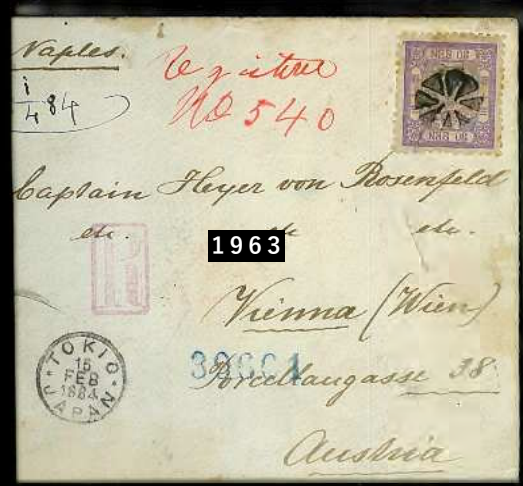 Naples.
i
4 84
Registered
No 540
Captain Heyer von Rosenfeld
etc. etc etc.
1963
R
Vienna (Wien)
Porcellangasse 38
Austria
TOKIO
15
FEB
1884
JAPAN